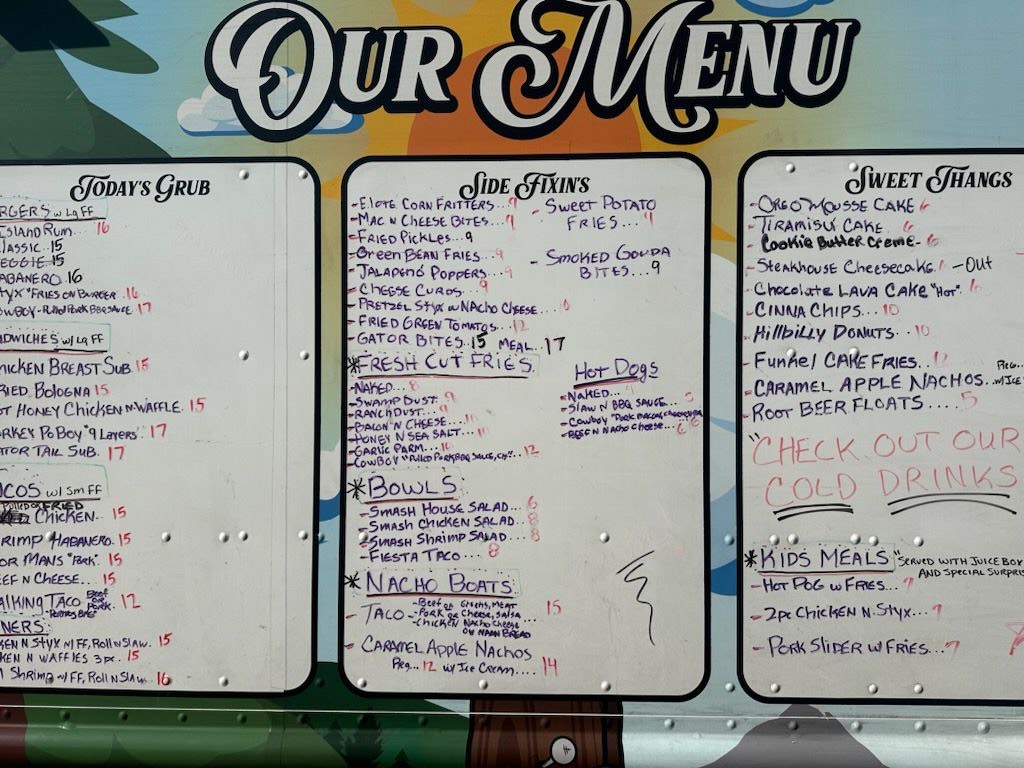 OUR MENU
TODAY'S GRUB
RGERS w Lg FF
ISLAND RUM... 16
LASSIC. 15
EGGIE. 15
ABANERO. 16
TYX "FRIES ON BURGER. 16
WBOY-PULLED PORK BBQ SAUCE. 17
NDWICHES w/ Lg FF
HICKEN BREAST SUB. 15
RIED BOLOGNA 15
OT HONEY CHICKEN-N-WAFFLE. 15
RKEY PO BOY "9 LAYERS" 17
ATOR TAIL SUB. 17
COS w/ Sm FF
OR FRIED
CHICKEN.. 15
RIMP HABANERO. 15
OR MANS "PORK". 15
EEF N CHEESE... 15
ALKING TACO BEEF OR PORK. 12
NERS:
KEN N STYX w/ FF, ROLL N SLAW. 15
KEN N WAFFLES 3pc. 15
SHRIMP w/ FF, ROLL N SLAW. 16
SIDE FIXIN'S
-ELOTE CORN FRITTERS... 9
-MAC N CHEESE BITES... 9
-FRIED PICKLES... 9
-GREEN BEAN FRIES... 9
-JALAPENO POPPERS... 9
-CHEESE CURDS... 9
-PRETZEL STYX w NACHO CHEESE...
-FRIED GREEN TOMATOS... 12
-GATOR BITES.. 15 MEAL.. 17
- SWEET POTATO
FRIES... 9
- SMOKED GOUDA
BITES... 9
*FRESH CUT FRIES
-NAKED... 8
-SWAMP DUST. 9
-RANCH DUST. 9
-BACON N CHEESE... 10
-HONEY N SEA SALT... 10
-GARLIC PARM... 10
-COWBOY "PULLED PORK BBQ SAUCE, CH"... 12
HOT DOGS
-NAKED...
-SLAW N BBQ SAUCE... 5
-COWBOY "PORK BACON, CHEESE, BBQ
-BEEF N NACHO CHEESE... 6
*BOWLS
-SMASH HOUSE SALAD... 6
-SMASH CHICKEN SALAD... 8
-SMASH SHRIMP SALAD... 8
-FIESTA TACO... 8
*NACHO BOATS
TACO -BEEF OR GREENS, MEAT 15
-PORK OR CHEESE, SALSA
-CHICKEN NACHO CHEESE
OR NAAN BREAD
CARAMEL APPLE NACHOS
Reg... 12 w/ ICE CREAM.... 14
SWEET THANGS
-OREO MOUSSE CAKE 6
-TIRAMISU CAKE. 6
-COOKIE BUTTER CREME- 6
-STEAKHOUSE CHEESECAKE. -OUT
-CHOCOLATE LAVA CAKE "HOT". 6
-CINNA CHIPS... 10
-HILLBILLY DONUTS.. 10
-FUNNEL CAKE FRIES.. 12
-CARAMEL APPLE NACHOS... Reg.. w/ICE
-ROOT BEER FLOATS.... 5
"CHECK OUT OUR
COLD DRINKS
*KIDS MEALS "SERVED WITH JUICE BOX
AND SPECIAL SURPRIS
-HOT DOG w FRIES... 7
-2pc CHICKEN N STYX... 7
-PORK SLIDER w FRIES... 7